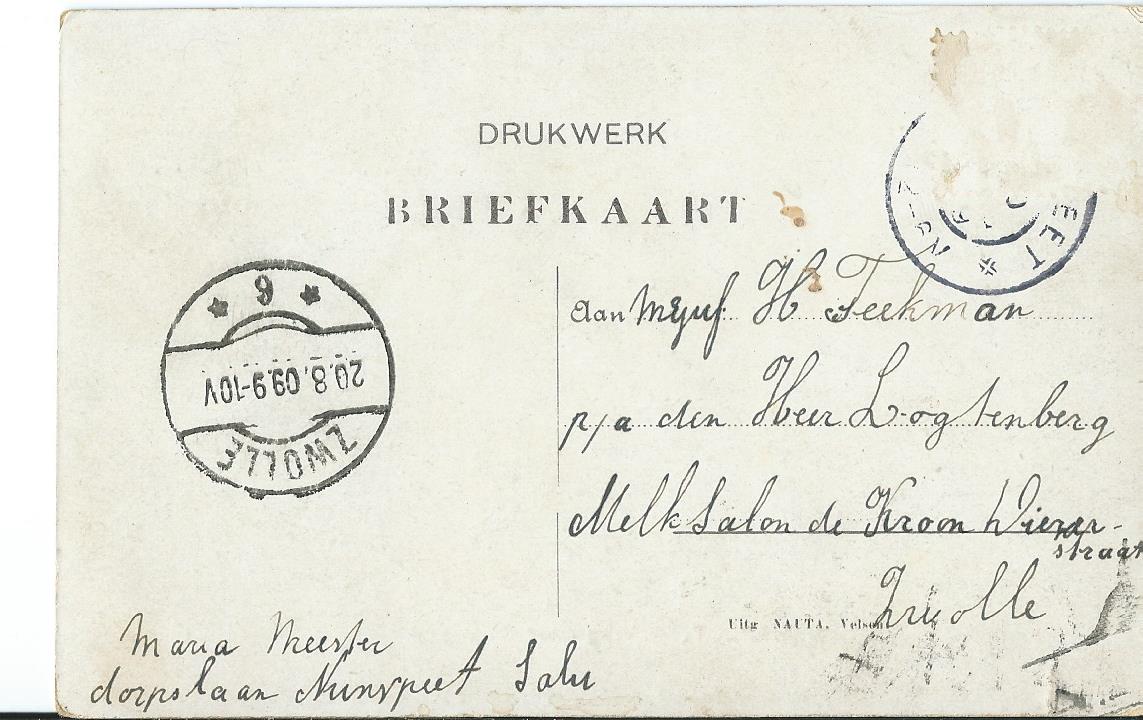 DRUKWERK
BRIEFKAART
EET * N
6
20.8.09.9-10V
ZWOLLE
Aan Mejuf H Teekman
p/a den Heer Logtenberg
Melk Salon de Kroon
straat
Zwolle
Uitg NAUTA, Velsen
Maria Meester
dorpslaan Nunspeet Salu